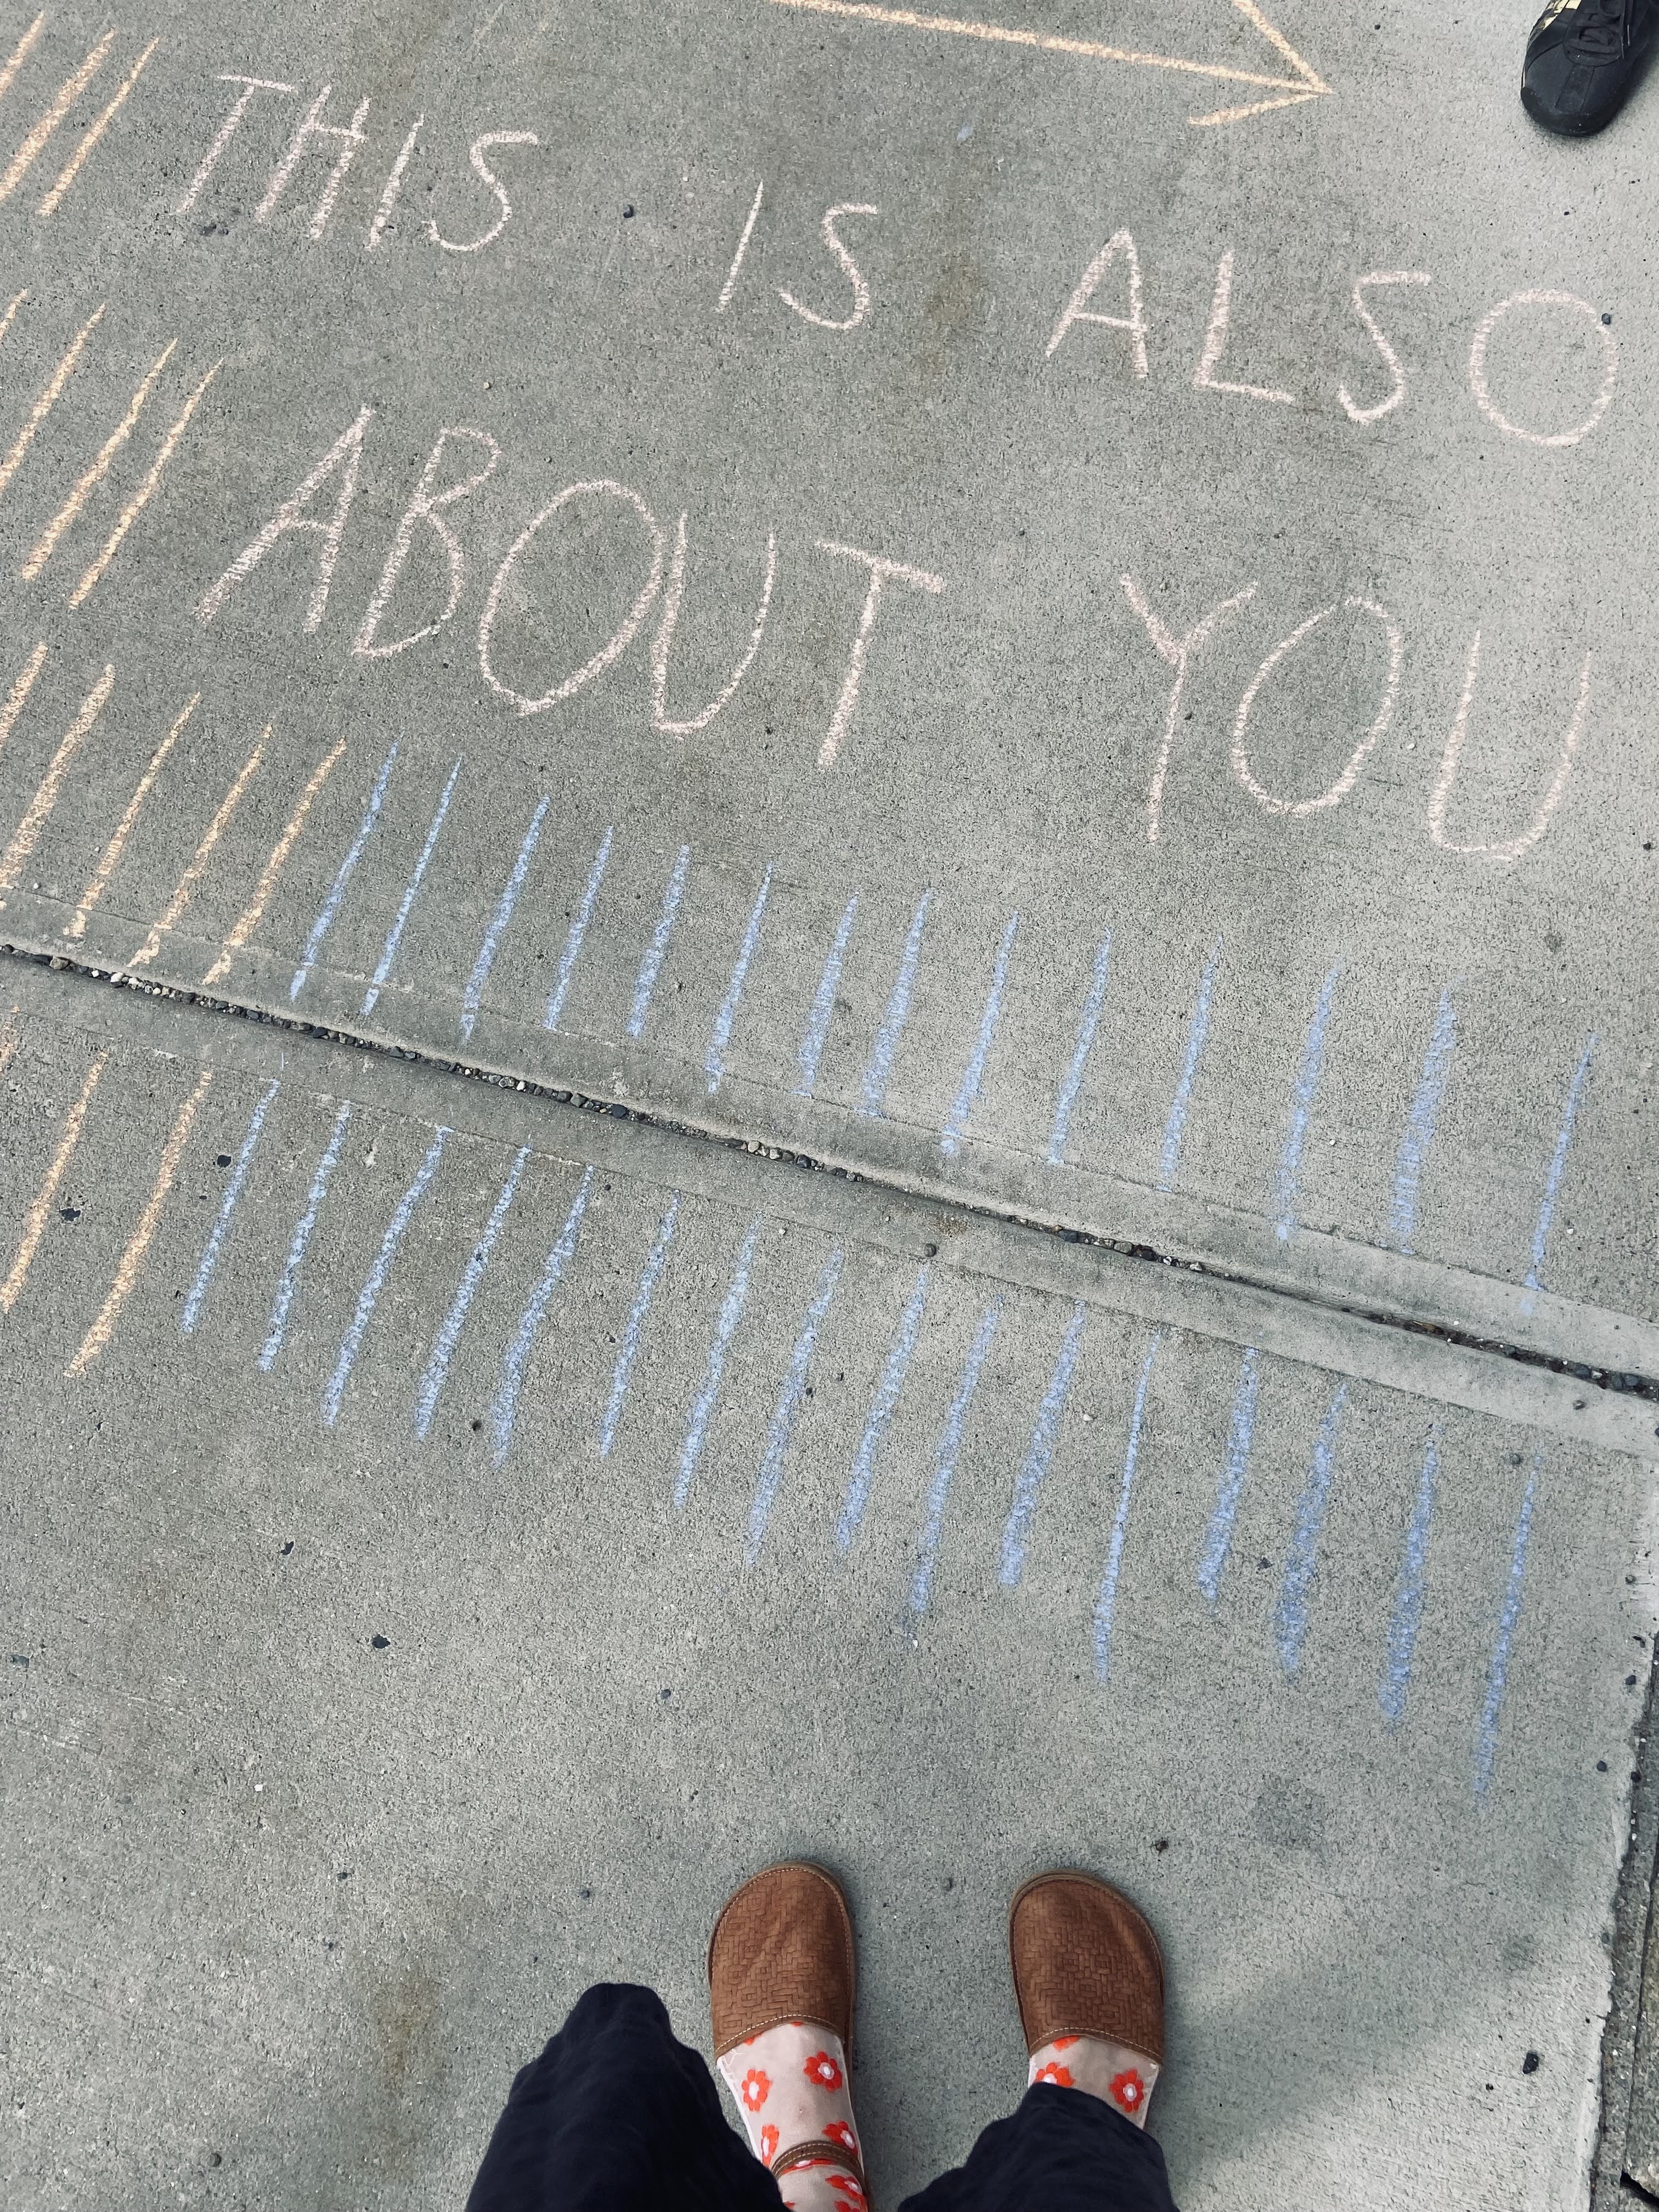 THIS IS ALSO
ABOUT YOU